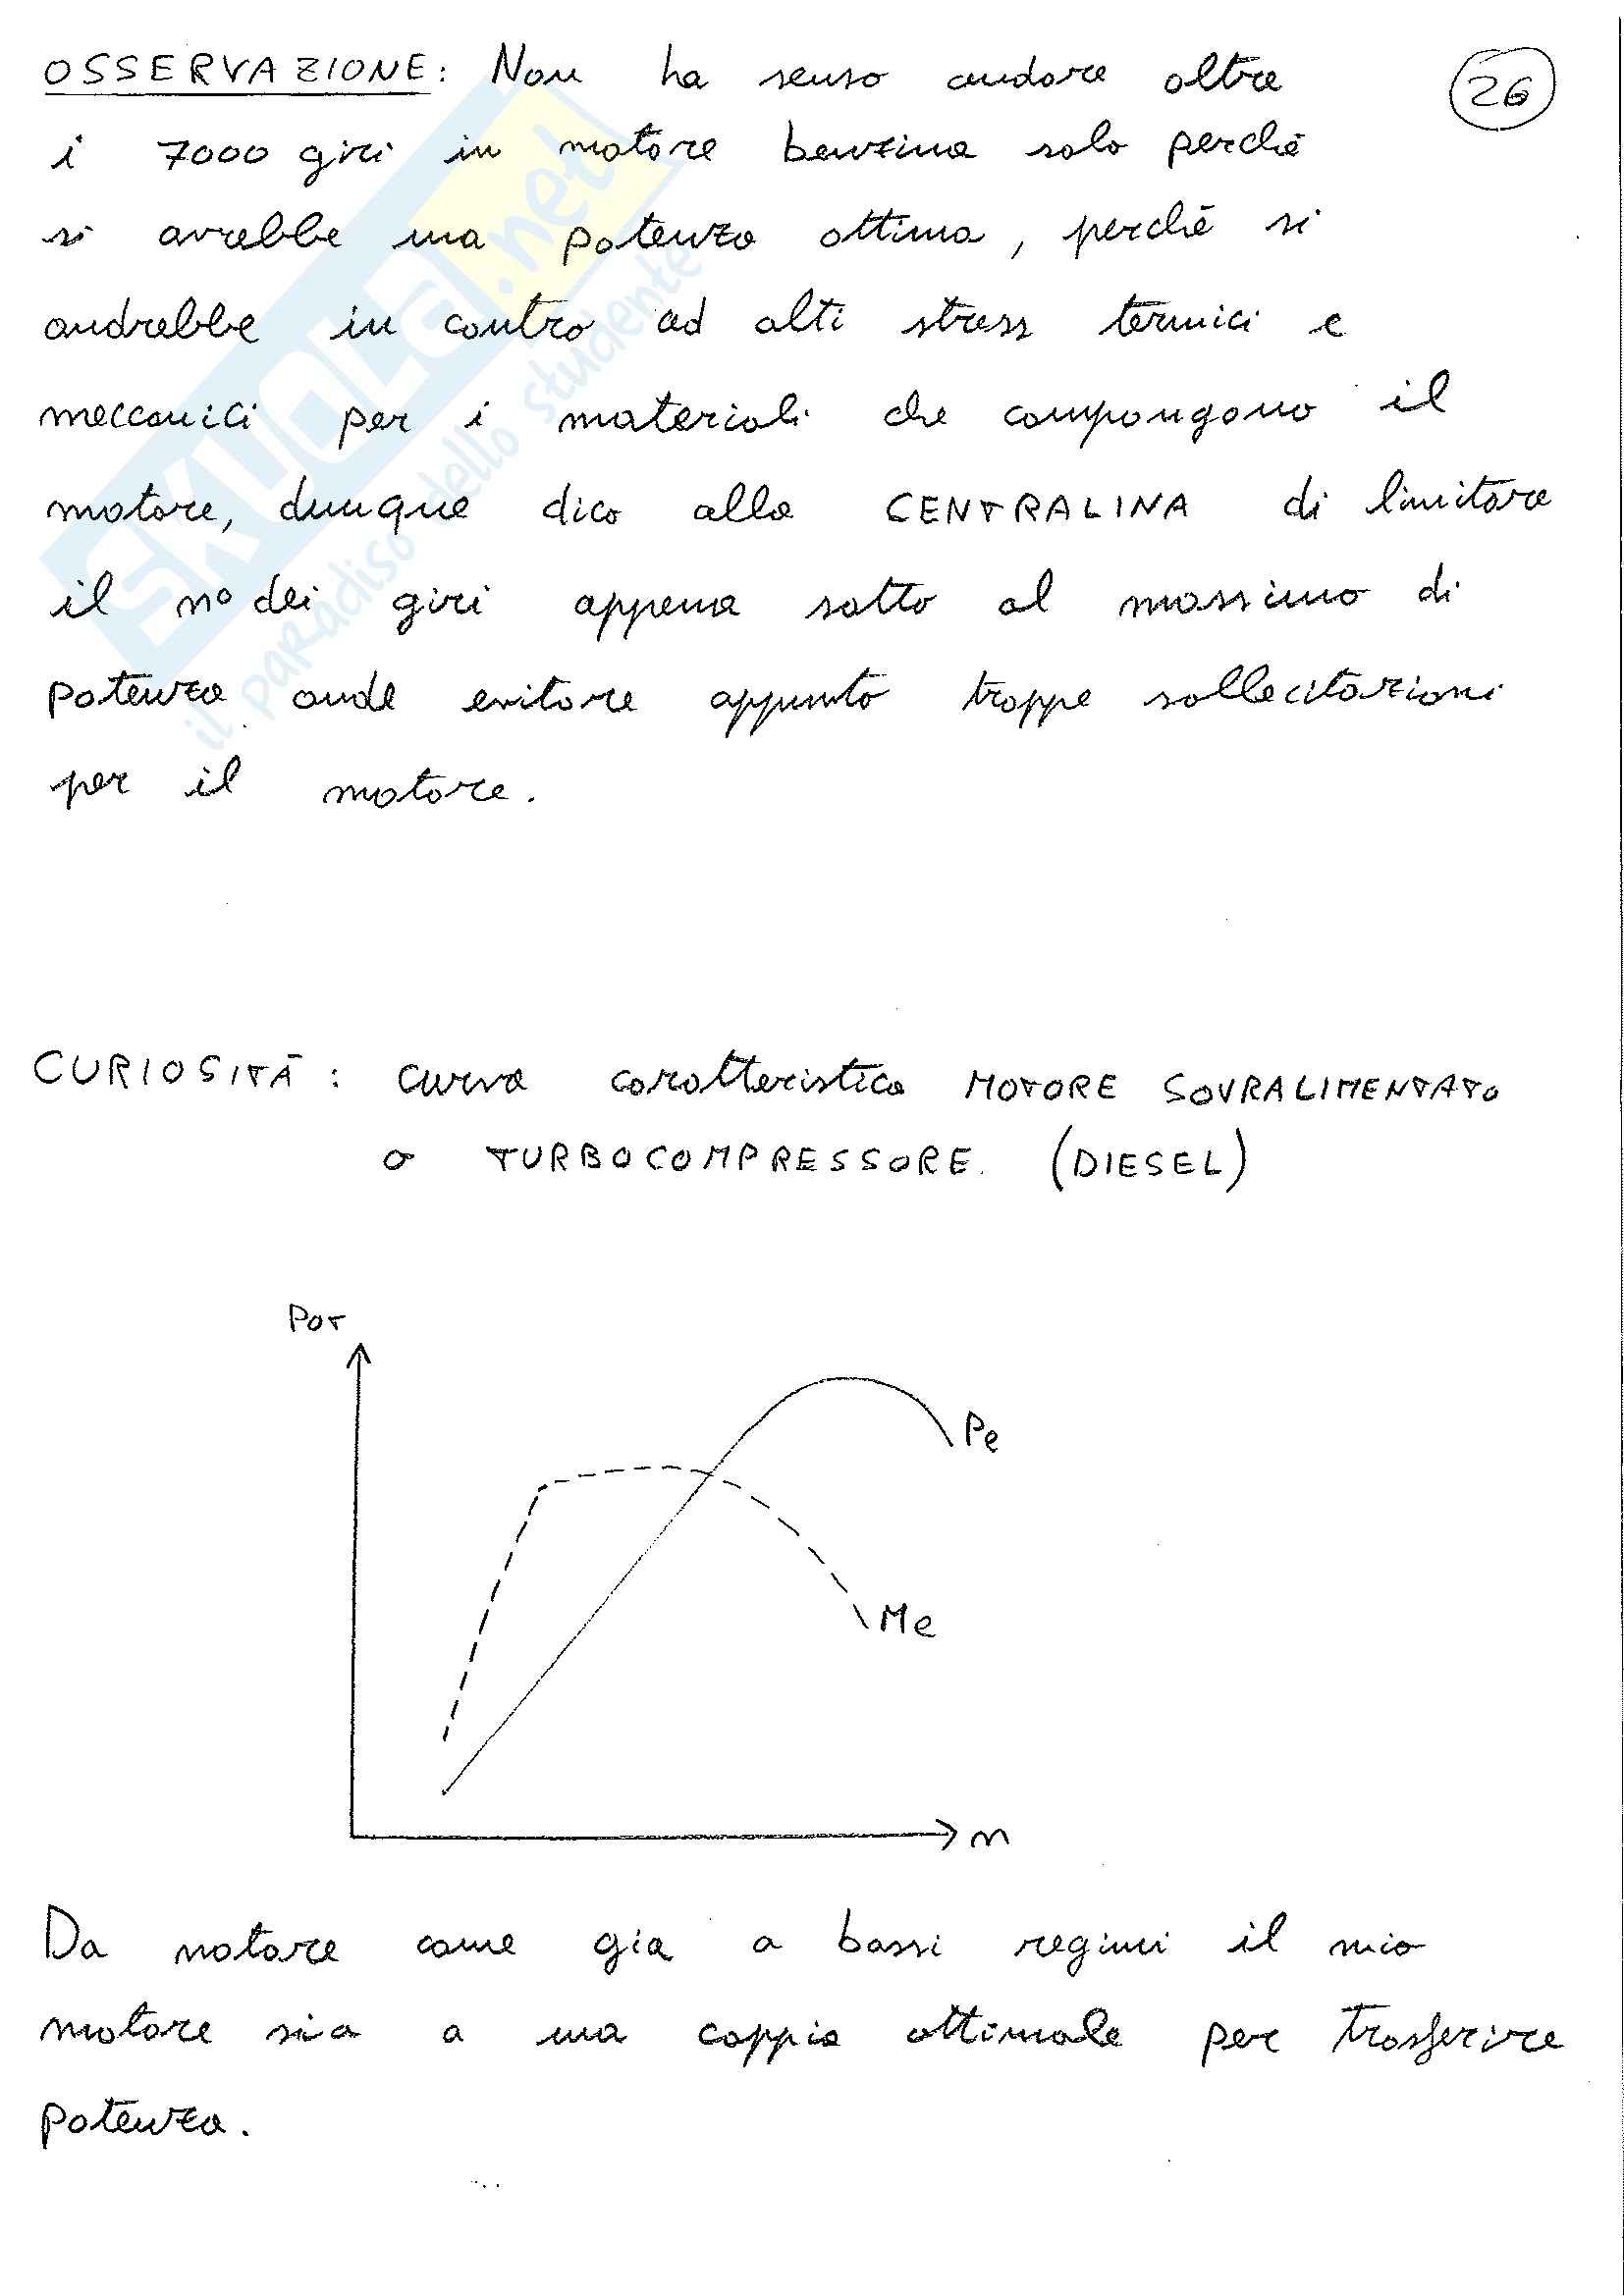 OSSERVAZIONE: Non ha senso andare oltre
26
i 7000 giri in motore benzina solo perchè
si avrebbe una potenza ottima, perchè si
andrebbe in contro ad alti stress termici e
meccanici per i materiali che compongono il
motore, dunque dico alla CENTRALINA di limitare
il n° dei giri appena sotto al massimo di
potenza onde evitare appunto troppe sollecitazioni
per il motore.
SKUOLA.net
il paradiso dello studente
CURIOSITÀ: curva caratteristica MOTORE SOVRALIMENTATO
o TURBOCOMPRESSORE. (DIESEL)
POT
Pe
Me
n
Da notare come già a bassi regimi il mio
motore sia a una coppia ottimale per trasferire
potenza.